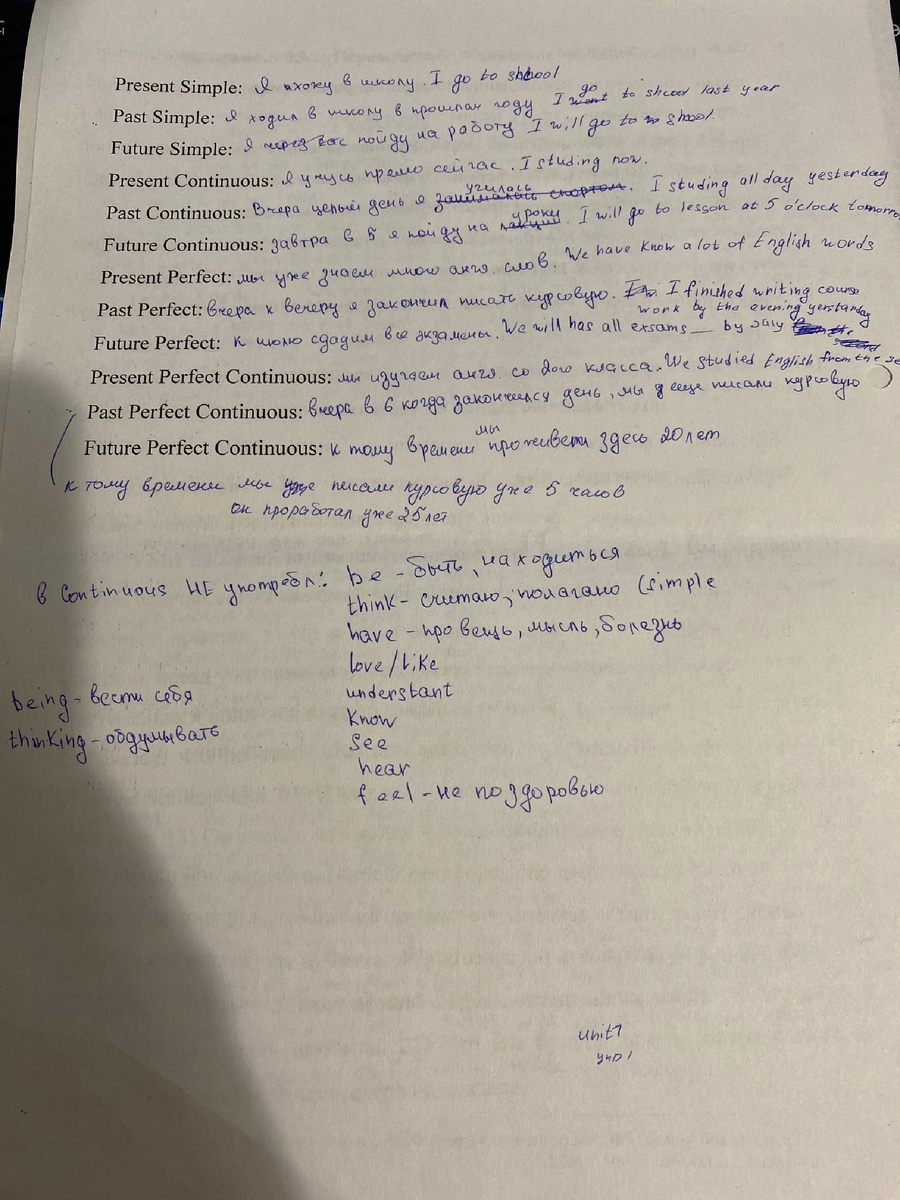 Present Simple: Я хожу в школу. I go to shool
Past Simple: Я ходил в школу в прошлом году I go to shcool last year
Future Simple: Я через час пойду на работу I will go to shool.
Present Continuous: Я учусь прямо сейчас. I studing now.
Past Continuous: Вчера целый день я занималась спортом. училась I studing all day yesterday
Future Continuous: завтра в 5 я пойду на уроку. I will go to lesson at 5 o'clock tomorro
Present Perfect: мы уже знаем много англ. слов. We have know a lot of English words
Past Perfect: вчера к вечеру я закончил писать курсовую. I finished writing course
work by the evening yerstarday
Future Perfect: к июлю сдадим все экзамены. We will has all exsams __ by July
Present Perfect Continuous: мы изучаем англ. со 2ого класса. We studied English from the se
Past Perfect Continuous: вчера в 6 когда закончился день, мы еще писали курсовую
Future Perfect Continuous: к тому времени мы проживем здесь 20 лет
к тому времени мы уже писали курсовую уже 5 часов
он проработал уже 25 лет
в Continuous НЕ употребл: be - быть, находиться
think - считаю, полагаю (simple
have - про вещь, мысль, болезнь
love/like
being - вести себя understant
thinking - обдумывать know
see
hear
feel - не по здоровью
unit 1
упр 1